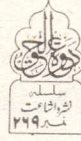 دعوۃ الحق
سلسلہ
نشر و اشاعت
نمبر ۲۶۹